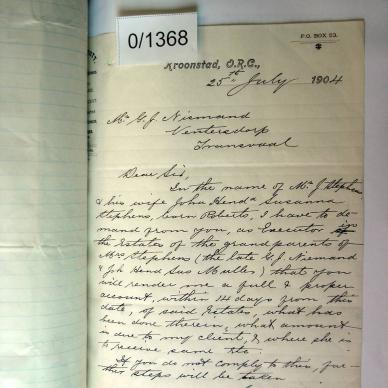 0/1368
P.O. BOX 53.
Kroonstad, O.R.C.,
25th July 1904
Mr G. J. Niemand
Ventersdorp
Transvaal
Dear Sir,
In the name of Mr J Stephens
& his wife Joha Hend^a Susanna
Stephens, born Roberts, I have to de-
mand from you, as Executor in
the Estates of the grandparents of
Mrs Stephens (the late G. J. Niemand
& Joh Hend Sus Muller) that you
will render me a full & proper
account, within 14 days from this
date, of said Estates, what has
been done therein, what amount
is due to my client, & where she is
to receive same etc.
If you do not comply to this, fur-
ther steps will be taken